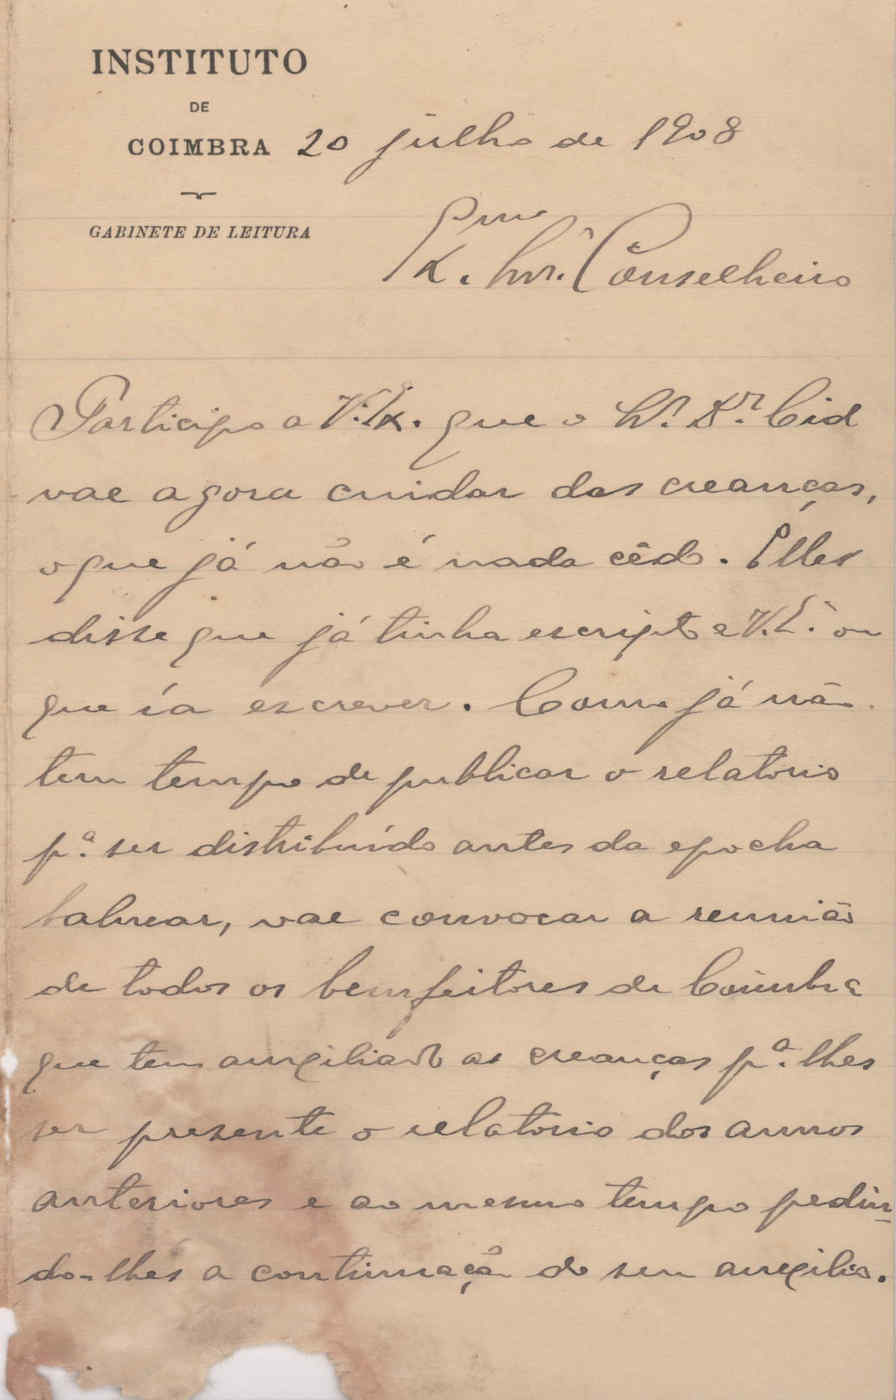 INSTITUTO
DE
COIMBRA
20 julho de 1908
GABINETE DE LEITURA
Exmo Snr. Conselheiro
Participo a V. Ex. que o Sr. Dr. Cid
vae agora cuidar das creanças,
o que já não é nada cêdo. Elles
disse que já tinha escripto a V. E. ou
que ía escrever. Como já não
tem tempo de publicar o relatorio
pª. ser distribuído antes da epocha
balnear, vae convocar a reunião
de todos os bemfeitores de Coimbra
que tem auxiliado as creanças pª. lhes
ser presente o relatorio dos annos
anteriores e ao mesmo tempo pedin-
do-lhes a continuação do seu auxilio.